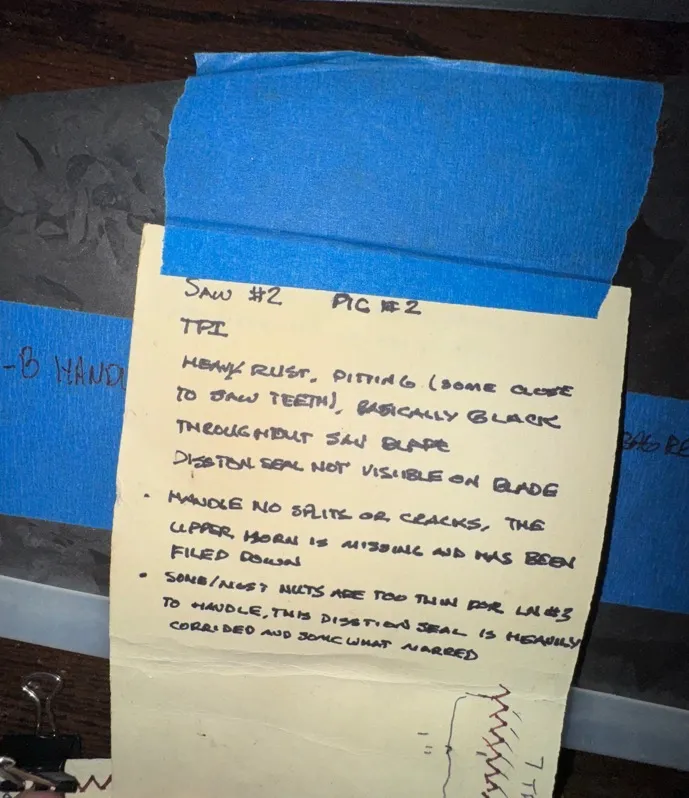 SAW #2 PIC #2
TPI
HEAVY RUST, PITTING (SOME CLOSE
TO SAW TEETH), BASICALLY BLACK
THROUGHOUT SAW BLADE
DISSTON SEAL NOT VISIBLE ON BLADE
• HANDLE NO SPLITS OR CRACKS, THE
UPPER HORN IS MISSING AND HAS BEEN
FILED DOWN
• SOME/MOST NUTS ARE TOO THIN FOR LN #3
TO HANDLE, THIS DISSTION SEAL IS HEAVILY
CORRIDED AND SOMEWHAT MARRED
-B HAND
1"
7 T